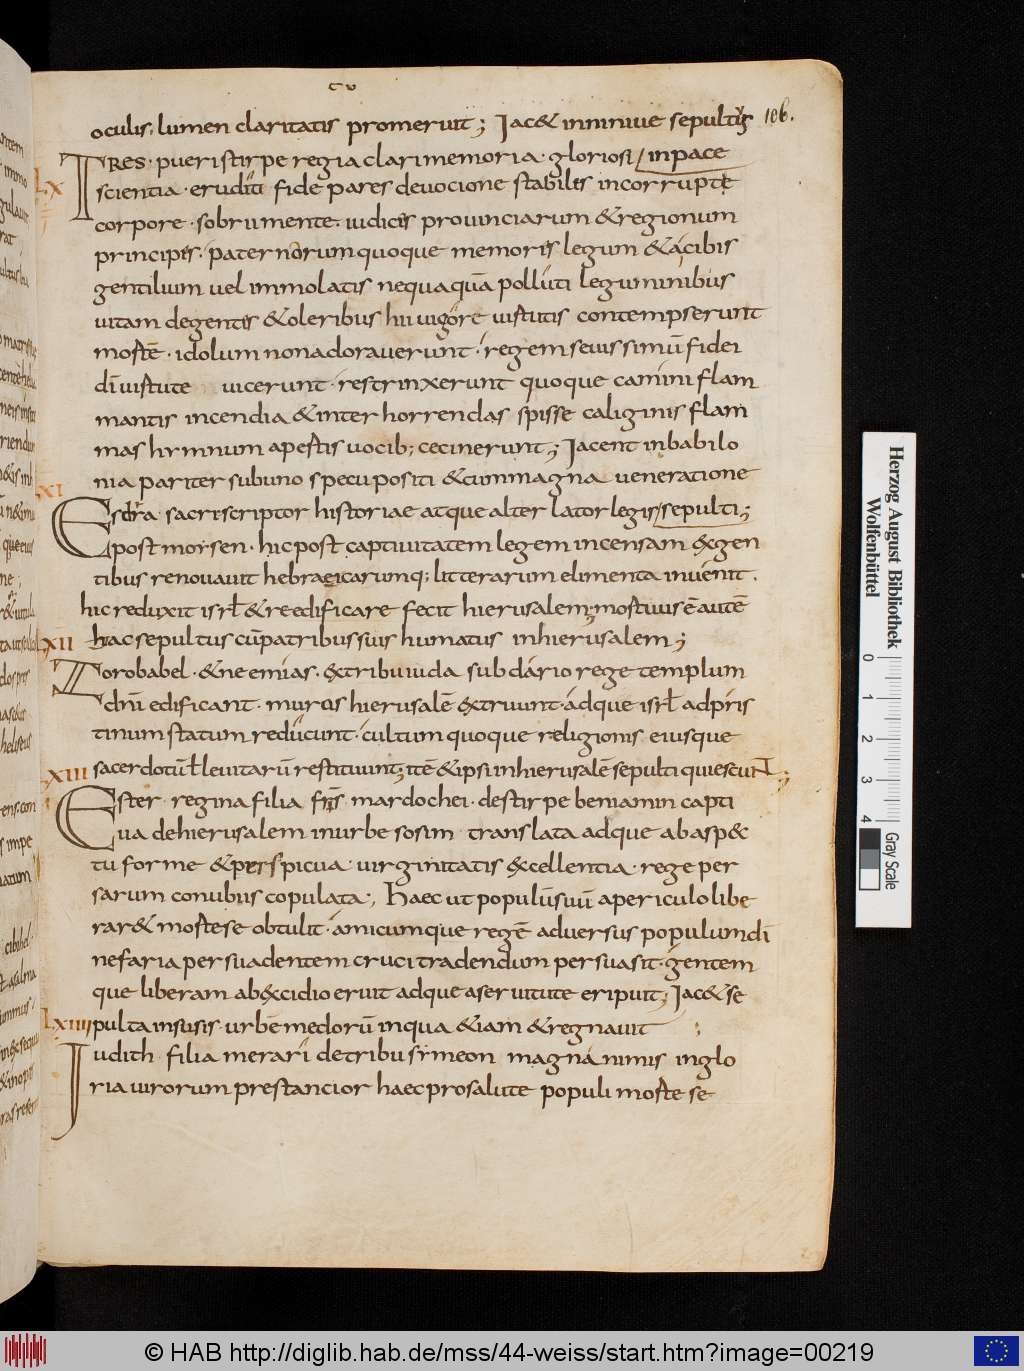 oculis; lumen claritatis promeruit; Iac& in niniue sepultus 106.
LX TRES· pueri stirpe regia clari memoria· gloriosi / in pace
scientia· eruditi fide pares deuocione stabiles incorrupte
corpore· sobrii mente· iudices prouinciarum & regionum
principes· paternorum quoque memores legum & a cibis
gentilium uel immolatis nequaquā polluti leguminibus
uitam degentes & oleribus hii uigore uistutis contempserunt
mostē· idolum non adorauerunt· regem seuissimū fidei
dī uistute uicerunt· restrinxerunt quoque camini flam
mantis incendia & inter horrendas spisse caliginis flam
mas hymnum apestis uocib; cecinerunt; Iacent in babilo
nia pariter sub uno specu positi & cum magna ueneratione
XI Esdra sacre scriptor historiae atque alter lator legis / sepulti;
post moysen· hic post captiuitatem legem incensam ex gen
tibus renouauit hebraeicarumq; litterarum elimenta inuenit·
hic reduxit isrł & reedificare fecit hierusalem; mostuus ē autē
hac sepultus cū patribus suis humatus in hierusalem;
LXII Zorobabel· & neemias· ex tribu iuda sub dario rege templum
dnī edificant· muros hierusalē extruunt· adque isrł ad pris
tinum statum reducunt· cultum quoque religionis eiusque
sacerdotū ł leuitarū restituunt; itē & ipsi in hierusalē sepulti quiescunt;
LXIII Ester regina filia frīs mardochei· de stirpe beniamin capti
ua de hierusalem in urbe sosim translata adque ab asp&
tu forme & perspicua uirginitatis excellentia· rege per
sarum conubiis copulata; Haec ut populū suū a periculo libe
rar& mosti se obtulit· amicumque regē aduersus populum dī
nefaria persuadentem cruci tradendum persuasit· gentem
que liberam ab excidio eruit adque a seruitute eripuit; Iac& se
pulta in susis· urbē medorū in qua & iam & regnauit ;
LXIIII Iudith· filia merari de tribu symeon magnanimis in glo
ria uirorum prestancior haec pro salute populi mosti se
Herzog August Bibliothek
Wolfenbüttel
0 1 2 3 4
Gray Scale
© HAB http://diglib.hab.de/mss/44-weiss/start.htm?image=00219